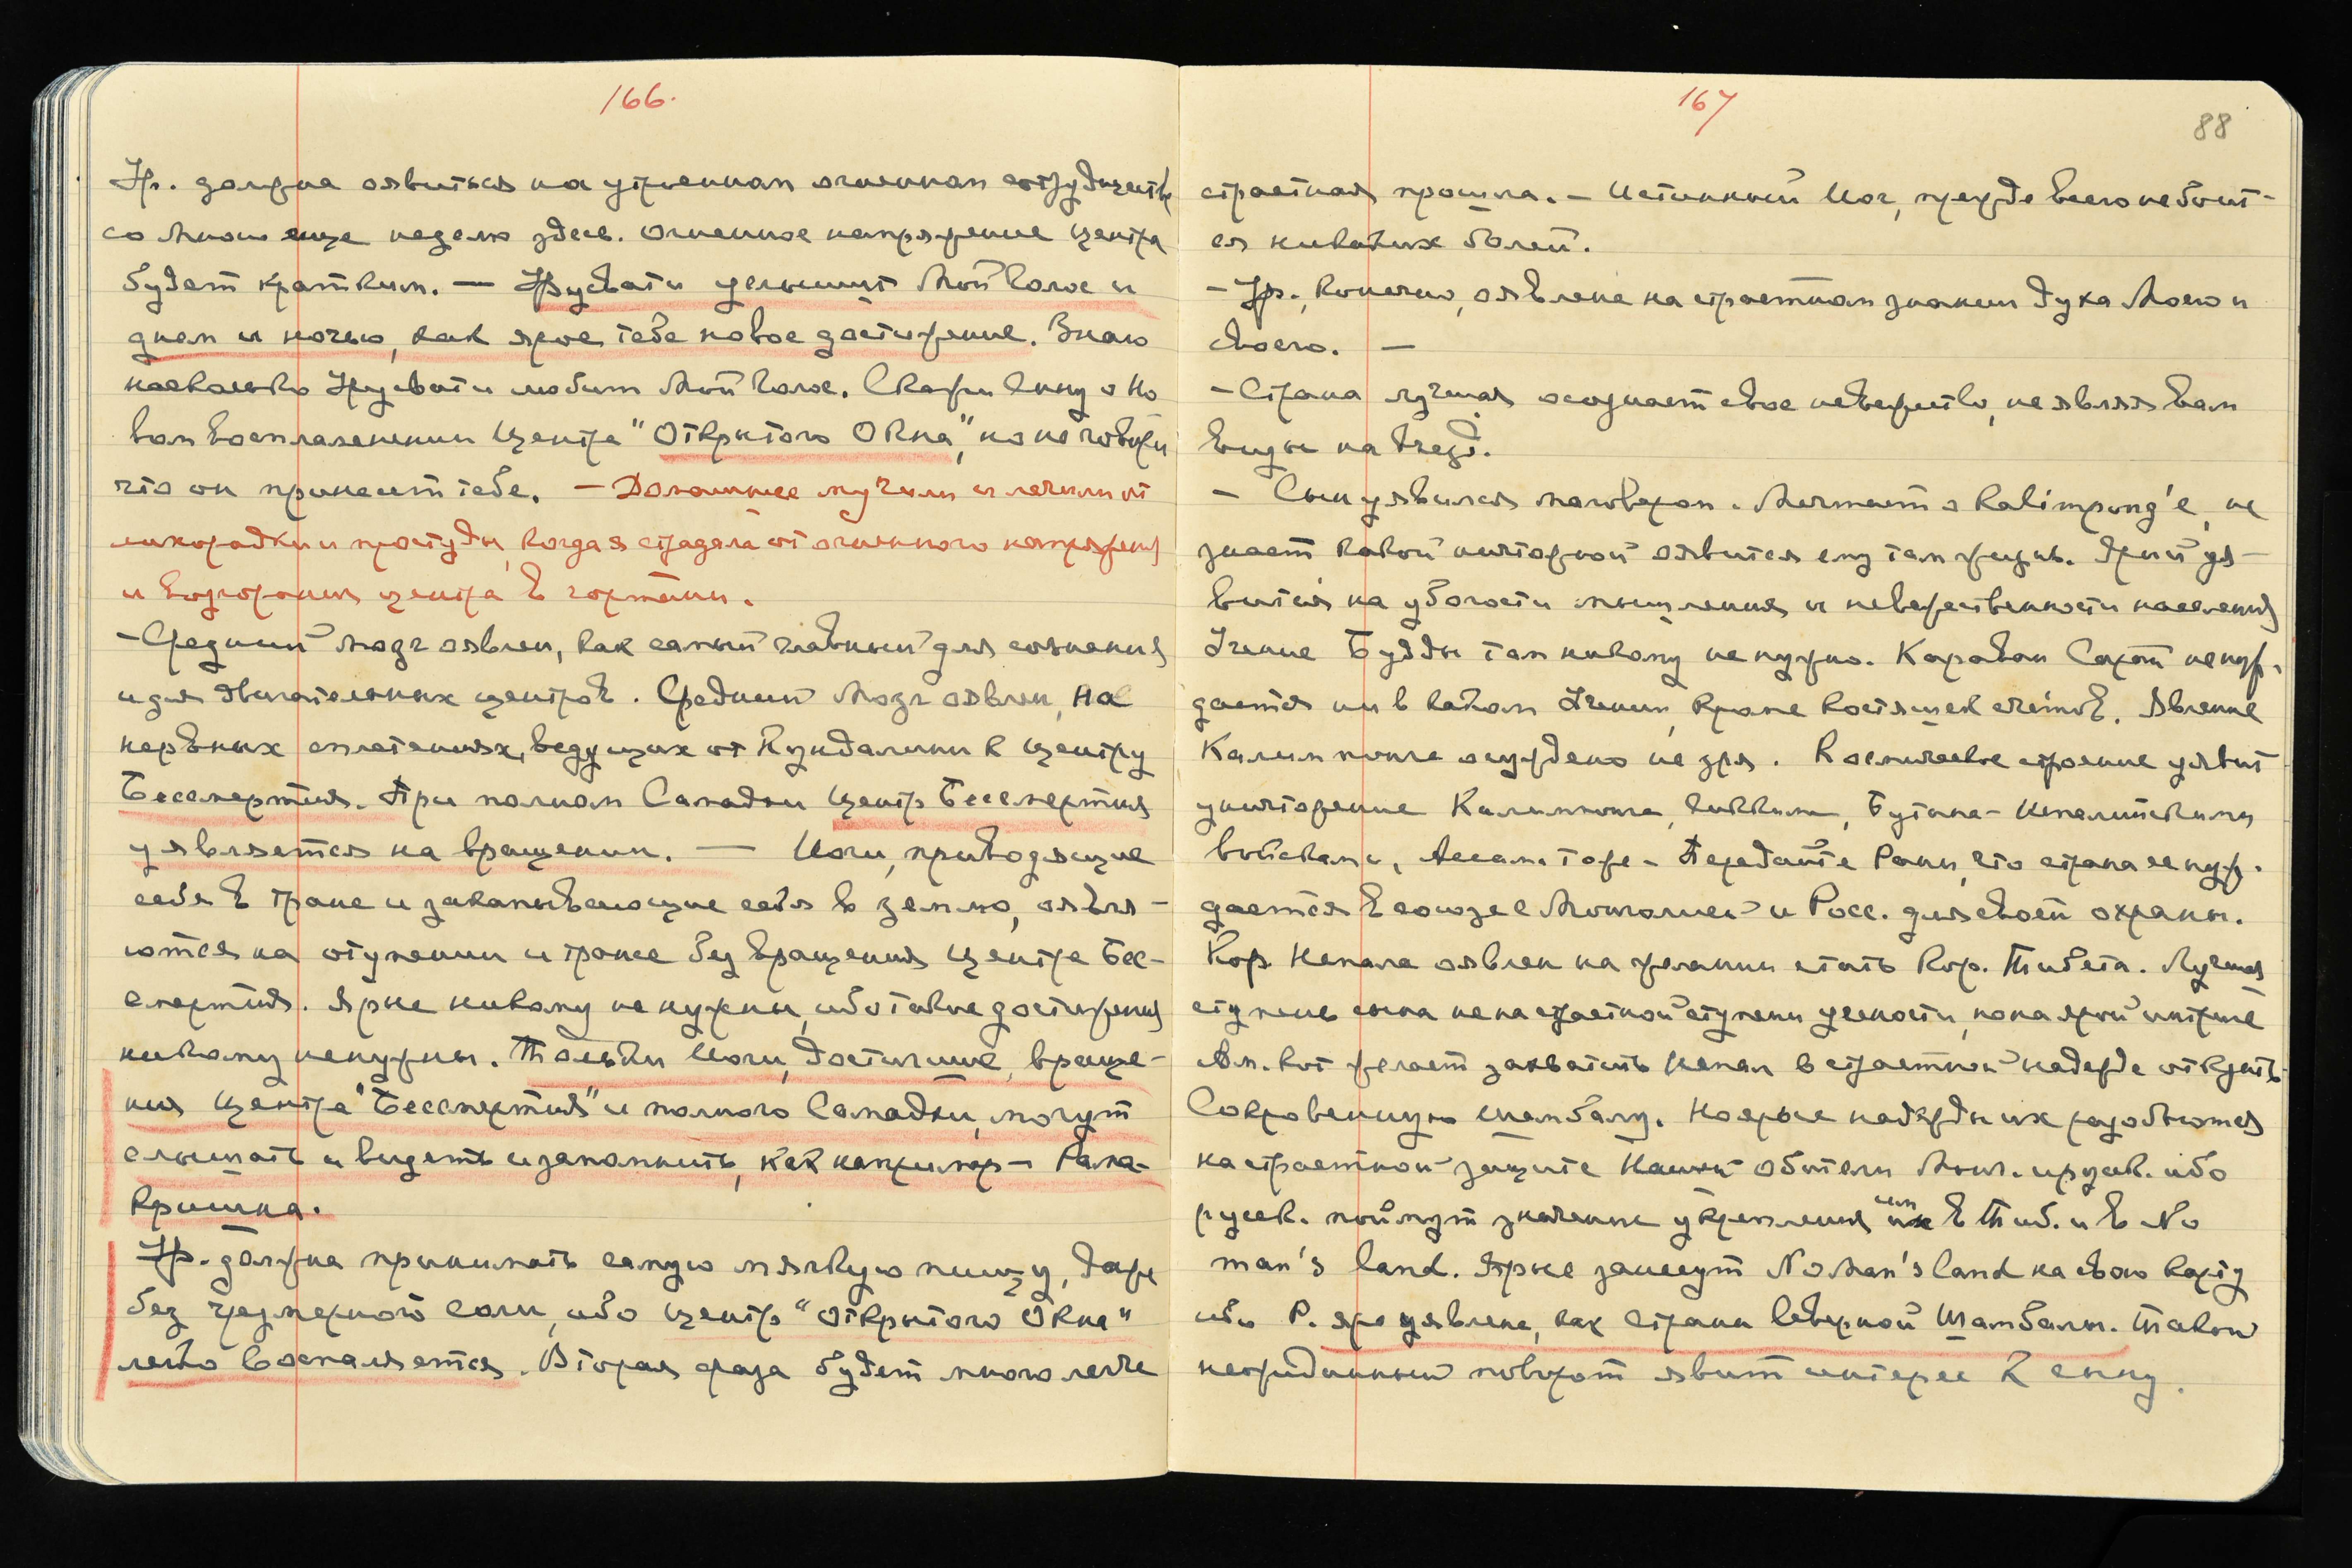 166.
Ур. должна оявиться на утроенном огненном сотрудничестве
со Мною еще неделю здесь. Огненное напряжение центра
будет кратким. — Урусвати услышит Мой Голос и
днем и ночью, как ярое тебе новое достижение. Знаю
насколько Урусвати любит Мой Голос. Скажи Сыну о но
вом воспламенении центра "Открытого Окна", но не говори
что он принесет тебе. — Домашнее мучили и лечили от
лихорадки и простуды, когда я страдала от огненного напряжения
и возгорания центра в гортани.
- Средний мозг оявлен, как самый главный для сознания
и для двигательных центров. Средний Мозг оявлен, на
нервных сплетениях, ведущих от Кундалини к центру
Бессмертия. При полном Самадхи центр Бессмертия
уявляется на вращении. — Йоги, приводящие
себя в транс и закапывающие себя в землю, оявля-
ются на отупении и трансе без вращения центра Бес-
смертия. Ярые никому не нужны, ибо такие достижения
никому ненужны. Только Йоги, достигшие враще-
ния центра "Бессмертия" и полного Самадхи, могут
слышать и видеть и запомнить, как например - Рама-
кришна.
Ур. должна принимать самую мягкую пищу, даже
без чрезмерной соли, ибо центр "Открытого Окна"
легко воспаляется. Вторая фаза будет много легче
167
88
страстная прошла. - Истинный Йог, прежде всего не боит-
ся никаких болей.
- Ур., конечно, оявлена на страстном знании духа Моего и
своего. —
- Страна лучшая осознает свое невежество, не являя вам
визы на въезд.
- Сын уявился маловером. Мечтает о Kalimpong'е, не
знает какой ничтожной оявится ему там жизнь. Ярый уя-
вится на убогости мышления и невежественности населения
Учение Будды там никому не нужно. Караван Сарай ненуж-
дается ни в каком Учении, кроме костяшек счетов. Явление
Калимпонга осуждено не зря. Космическое строение уявит
уничтожение Калимпонга, Сиккима, Бутана - Непалийскими
войсками, Ассам тоже - Передайте Рани, что страна ее нуж-
дается в союзе с Монголией и Росс. для своей охраны.
Кор. Непала оявлен на желании стать Кор. Тибета. Лучшая
ступень сына не на страстной ступени учености, но на ярой интриге
Ам. кот желает захватить Непал в страстной надежде открыть
Сокровенную Шамбалу. Но ярые надежды их разобьются
на страстной защите Нашей обители Монг. и русск. ибо
русск. поймут значение укрепления им в Тиб. и в No
man's land. Ярые занесут No Man's land на свою карту
ибо Р. яро уявлена, как страна Северной Шамбалы. Такой
неожиданный поворот явит интерес к сыну.